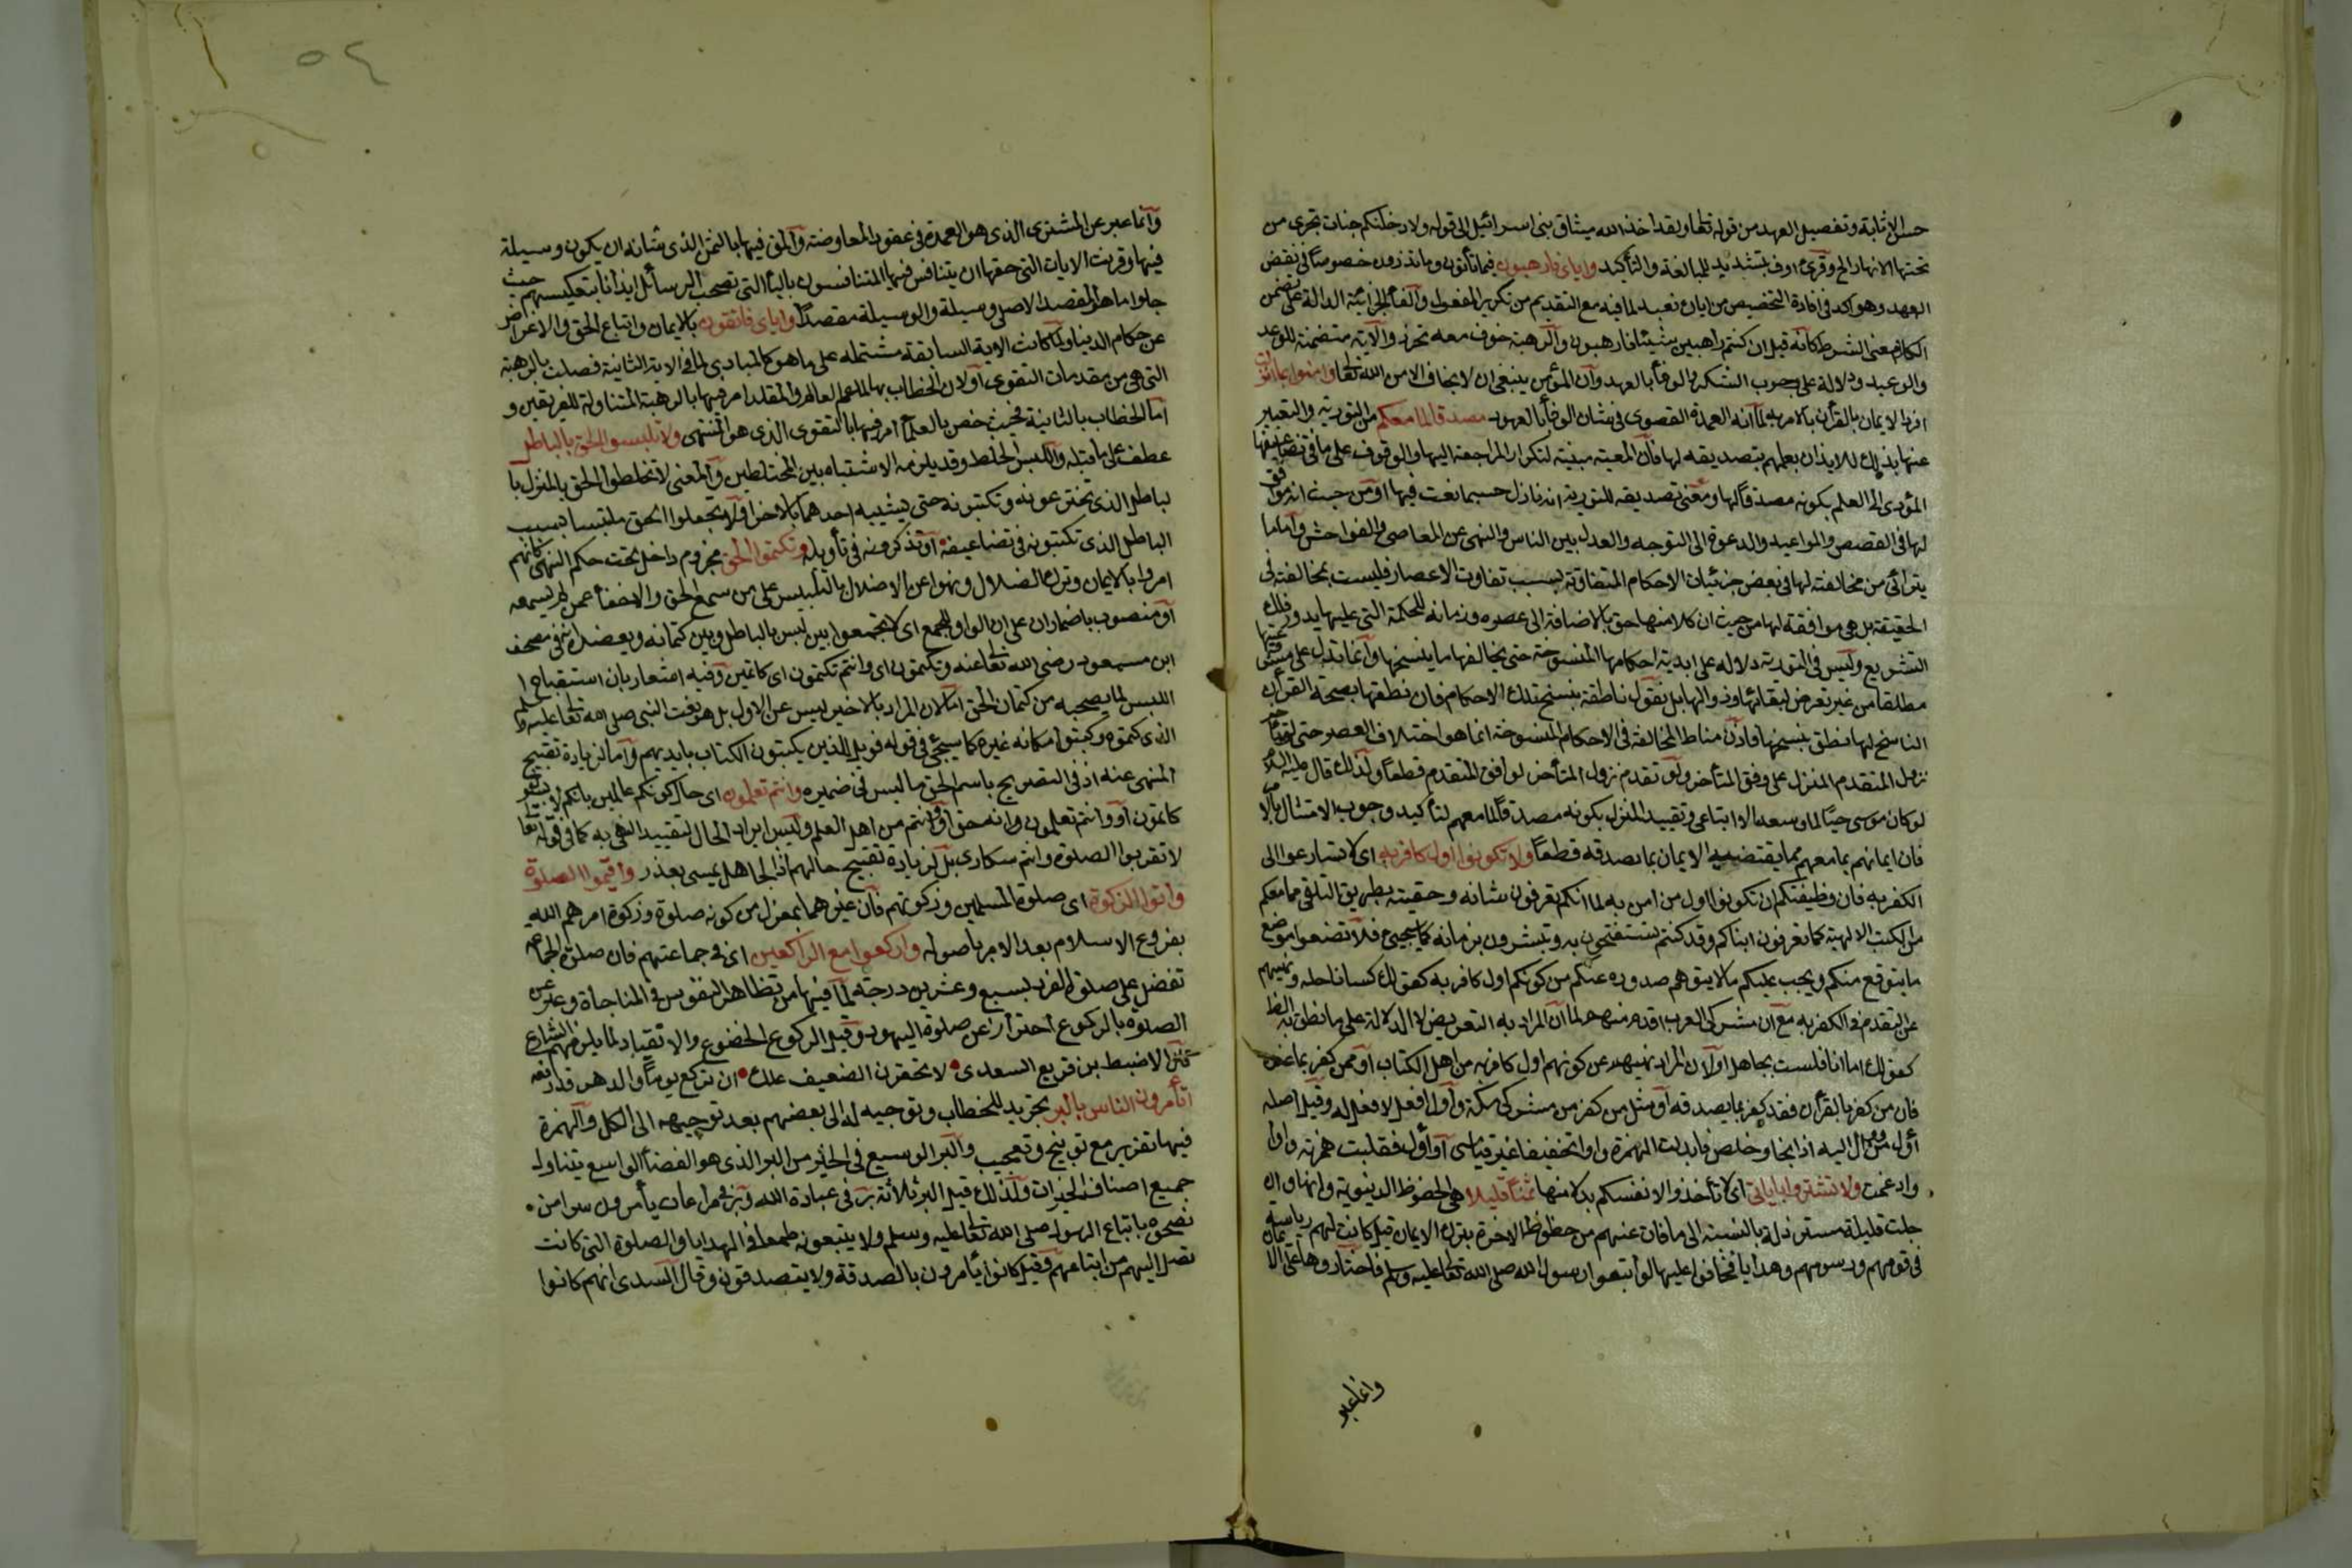 حسن الاثابة وتفصيل العهدين قوله تعا ولقد اخذ الله ميثاق بنى اسرائيل الى قوله ولادخلنكم جنات تجرى من
تحتها الانهار الخ وقرئ اوف بتشديد للمبالغة والتأكيد واياى فارهبون فيما تأتون وما تذرون خصوصا فى نقض
العهد وهو اكد فى افادة التخصيص من اياك نعبد لما فيه مع التقديم من تكرير المفعول والفأ الجزائية الدالة على تضمن
الكلام معنى الشرط كانه قيل ان كنتم راهبين شيئا فارهبون والرهبة خوف معه تحرز والآية متضمنة للوعد
والوعيد ودلالة على وجوب الشكر والوفأ بالعهد وان المؤمن ينبغى ان لا يخاف الا من الله تعا وامنوا بما انزلت
افرد الايمان بالقرأن بالامر به لما انه العمدة القصوى فى شان الوفأ بالعهود مصدقا لما معكم من التورية والتعبير
عنها بذلك للايذان بعلمهم بتصديقه لها فان المعية مبنية لتكرار المراجعة اليها والوقوف على ما فى تضاعيفها
المؤدى الى العلم بكونه مصدقا لها ومعنى تصديقه للتورية انه نازل حسبما نعت فيها او من حيث انه موافق
لها فى القصص والمواعيد والدعوة الى التوجه والعدل بين الناس والنهى عن المعاصى والفواحش واما ما
يترائى من مخالفته لها فى بعض جزئيات الاحكام المتفاوتة بسبب تفاوت الاعصار فليست بمخالفة فى
الحقيقة بل هى موافقة لها من حيث ان كلا منها حق بالاضافة الى عصره وزمانه للحكمة التى عليها يدور فلك
التشريع وليس فى التورية دلالة على ابدية احكامها المنسوخة حتى يخالفها ما ينسخها وانما تدل على مشروعيتها
مطلقا من غير تعرض لبقائها وزوالها بل نقول ناطقة بنسخ تلك الاحكام فان نطقها بصحة القرآن
الناسخ لها نطق بنسخها فاذن مناط المخالفة فى الاحكام المنسوخة انما هو اختلاف العصر حتى لو تأخر
نزول المتقدم المنزل على وفق المتأخر ولو تقدم نزول المتأخر لوافق المتقدم قطعا ولذلك قال عليه السلام
لو كان موسى حيا لما وسعه الا اتباعى وتقييد المنزل بكونه مصدقا لما معهم لتأكيد وجوب الامتثال بالامر
فان ايمانهم بما معهم مما يقتضيه الايمان بما يصدقه قطعا ولا تكونوا اول كافر به اى لا تسارعوا الى
الكفر به فان وظيفتكم ان تكونوا اول من امن به لما انكم تعرفون شانه وحقيته بطريق التلقى مما معكم
من الكتب الالهية كما تعرفون ابناكم وقد كنتم تستفتحون به وتبشرون بزمانه كما سيجئ فلا تضعوا موضع
ما يتوقع منكم ويجب عليكم ما لا يتوهم صدوره عنكم من كونكم اول كافر به كقولك كسانا حلة ونهيهم
عن التقدم فى الكفر به مع ان مشركى العرب اقدم منهم لما ان المراد به التعريض لا الدلالة على ما نطق به الظاهر
كقولك اما انا فلست بجاهل او لان المراد نهيهم عن كونهم اول كافر به من اهل الكتاب او ممن كفر بما عنده
فان من كفر بالقرأن فقد كفر بما يصدقه او مثل من كفر من مشركى مكة واول افعل لا فعل له وقيل اصله
أوأل من وأل اليه اذا نجا وخلص فابدلت الهمزة واوا تخفيفا غير قياسى او أأول فقلبت همزته واوا
وادغمت ولا تشتروا باياتى اى لا تأخذوا لانفسكم بدلا منها ثمنا قليلا هى الحظوظ الدنيوية وانها وان
جلت قليلة مسترذلة بالنسبة الى ما فات عنهم من حظوظ الاخرة بترك الايمان قيل كانت لهم رياسة
فى قومهم ورسومهم وهدايا فخافوا عليها لو اتبعوا رسول الله صلى الله تعا عليه وسلم فاختاروها على الايمان
وانما عبر
٥٤
وانما عبر عن المشترى الذى هو العمدة فى عقود المعاوضة والمق فيها بالثمن الذى شانه ان يكون وسيلة
فيها وقرنت الايات التى حقها ان يتنافس فيها المتنافسون بالبأ التى تصحب الوسائل ايذانا بتعكيسهم حيث
جعلوا ما هو المقصد الاصلى وسيلة والوسيلة مقصدا واياى فاتقون بالايمان واتباع الحق والاعراض
عن حكام الدنيا ولما كانت الاية السابقة مشتملة على ما هو كالمبادى لما فى الاية الثانية فصلت بالرهبة
التى هى من مقدمات التقوى او لان الخطاب بها لما عم العالم والمقلد امر فيها بالرهبة المتناولة للفريقين و
اما الخطاب بالثانية فحيث خص بالعلمأ امر فيها بالتقوى الذى هو المنتهى ولا تلبسوا الحق بالباطل
عطف على ما قبله واللبس الخلط وقد يلزمه الاشتباه بين المختلطين والمعنى لا تخلطوا الحق بالمنزل با
لباطل الذى تخترعونه وتكتبونه حتى يشتبه احدهما بالاخر او لا تجعلوا الحق ملتبسا بسبب
الباطل الذى تكتبونه فى تضاعيفه او تذكرونه فى تأويله وتكتموا الحق مجزوم داخل تحت حكم النهى كانهم
امروا بالايمان وترك الضلال ونهوا عن الاضلال بالتلبيس على من سمع الحق والاخفأ عمن لم يسمعه
او منصوب باضمار ان على ان الواو للجمع اى لا تجمعوا بين لبس بالباطل وبين كتمانه ويعضده انه فى مصحف
ابن مسعود رضى الله تعا عنه وتكتمون اى وانتم تكتمون اى كاتمين وفيه اشعار بان استقباح ا
للبس لما يصحبه من كتمان الحق اما لان المراد بالاخير ليس عن الاول بل هو نعت النبى صلى الله تعا عليه وسلم
الذى كتموه وكتبوا مكانه غيره كما سيجئ فى قوله فويل للذين يكتبون الكتاب بايديهم واما لزيادة تقبيح
المنهى عنه اذ فى التصريح باسم الحق ما ليس فى ضميره وانتم تعلمون اى حال كونكم عالمين بانكم لابسون
كاتمون او وانتم تعلمون وانه حق او وانتم من اهل العلم وليس ايراد الحال لتقييد النهى به كما فى قوله تعا
لا تقربوا الصلوة وانتم سكارى بل لزيادة تقبيح حالهم اذ الجاهل عسى يعذر واقيموا الصلوة
واتوا الزكوة اى صلوة المسلمين وزكوتهم فان غيرهما بمعزل من كونه صلوة وزكوة امرهم الله
بفروع الاسلام بعد الامر باصوله واركعوا مع الراكعين اى فى جماعتهم فان صلوة الجماعة
تفضل على صلوة الفرد بسبع وعشرين درجة لما فيها من تظاهر النفوس فى المناجاة وعبر عن
الصلوة بالركوع احترازا عن صلوة اليهود وقيل الركوع الخضوع والانقياد لما يلزمهم الشارع
قال الاضبط بن قريع السعدى • لا تحقرن الضعيف علك • ان تركع يوما والدهر قد رفعه
اتأمرون الناس بالبر تجريد للخطاب وتوجيه له الى بعضهم بعد توجيهه الى الكل والهمزة
فيها تقرير مع توبيخ وتعجيب والبر الوسيع فى الخير من البر الذى هو الفضأ الواسع يتناول
جميع اصناف الخيرات ولذلك قيل البر ثلاثة بر فى عبادة الله وبر فى مراعات يأمرون سرا من •
نصحوه باتباع الرسول صلى الله تعا عليه وسلم ولا يتبعونه طمعا فى الهدايا والصلوة التى كانت
تصل اليهم من اتباعهم وقيل كانوا يأمرون بالصدقة ولا يتصدقون وقال السدى انهم كانوا